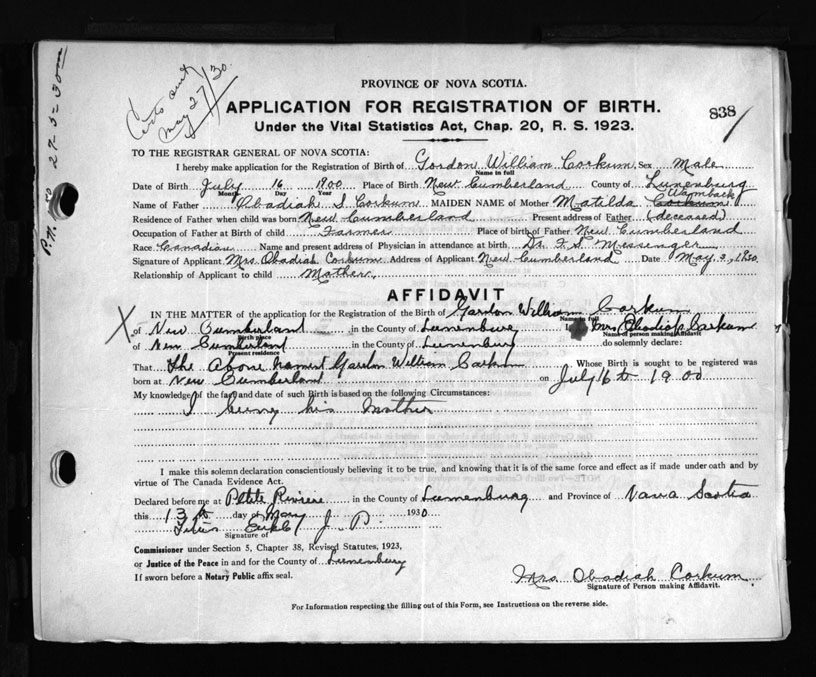 Certs out
May 27/30
P.N. 50 27-5-30
PROVINCE OF NOVA SCOTIA.
APPLICATION FOR REGISTRATION OF BIRTH.
838/
Under the Vital Statistics Act, Chap. 20, R. S. 1923.
TO THE REGISTRAR GENERAL OF NOVA SCOTIA:
I hereby make application for the Registration of Birth of Gordon William Corkum Sex Male
Name in full
Date of Birth July 16 1900 Place of Birth New Cumberland County of Lunenburg
Month Day Year
Wamback
Name of Father Obadiah S Corkum MAIDEN NAME of Mother Matilda Corkum
Residence of Father when child was born New Cumberland Present address of Father (deceased)
Occupation of Father at Birth of child Farmer Place of birth of Father New Cumberland
Race Canadian Name and present address of Physician in attendance at birth Dr. F. S. Messenger
Signature of Applicant Mrs. Obadiah Corkum Address of Applicant New Cumberland Date May 3, 1930.
Relationship of Applicant to child Mother.
AFFIDAVIT
IN THE MATTER of the application for the Registration of the Birth of Gordon William Corkum
Name in full
X of New Cumberland in the County of Lunenburg I Mrs Obadiah Corkum
Birth place Name of person making Affidavit
of New Cumberland in the County of Lunenburg do solemnly declare:
Present residence
That The Above named Gordon William Corkum Whose Birth is sought to be registered was
born at New Cumberland on July 16th 1900
My knowledge of the fact and date of such Birth is based on the following Circumstances:
I being his Mother
I make this solemn declaration conscientiously believing it to be true, and knowing that it is of the same force and effect as if made under oath and by
virtue of The Canada Evidence Act.
Declared before me at Petite Riviere in the County of Lunenburg and Province of Nova Scotia
this 13th day of May 1930
Titus J. P.
Signature of
Commissioner under Section 5, Chapter 38, Revised Statutes, 1923,
or Justice of the Peace in and for the County of Lunenburg
If sworn before a Notary Public affix seal.
Mrs. Obadiah Corkum
Signature of Person making Affidavit.
For Information respecting the filling out of this Form, see Instructions on the reverse side.